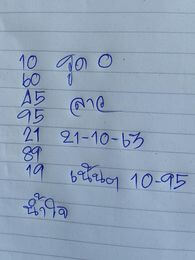 10 รูด 0
60
45 ลาว
95
21 21-10-63
89
19 เน้นๆ 10-95
น้ำใจ